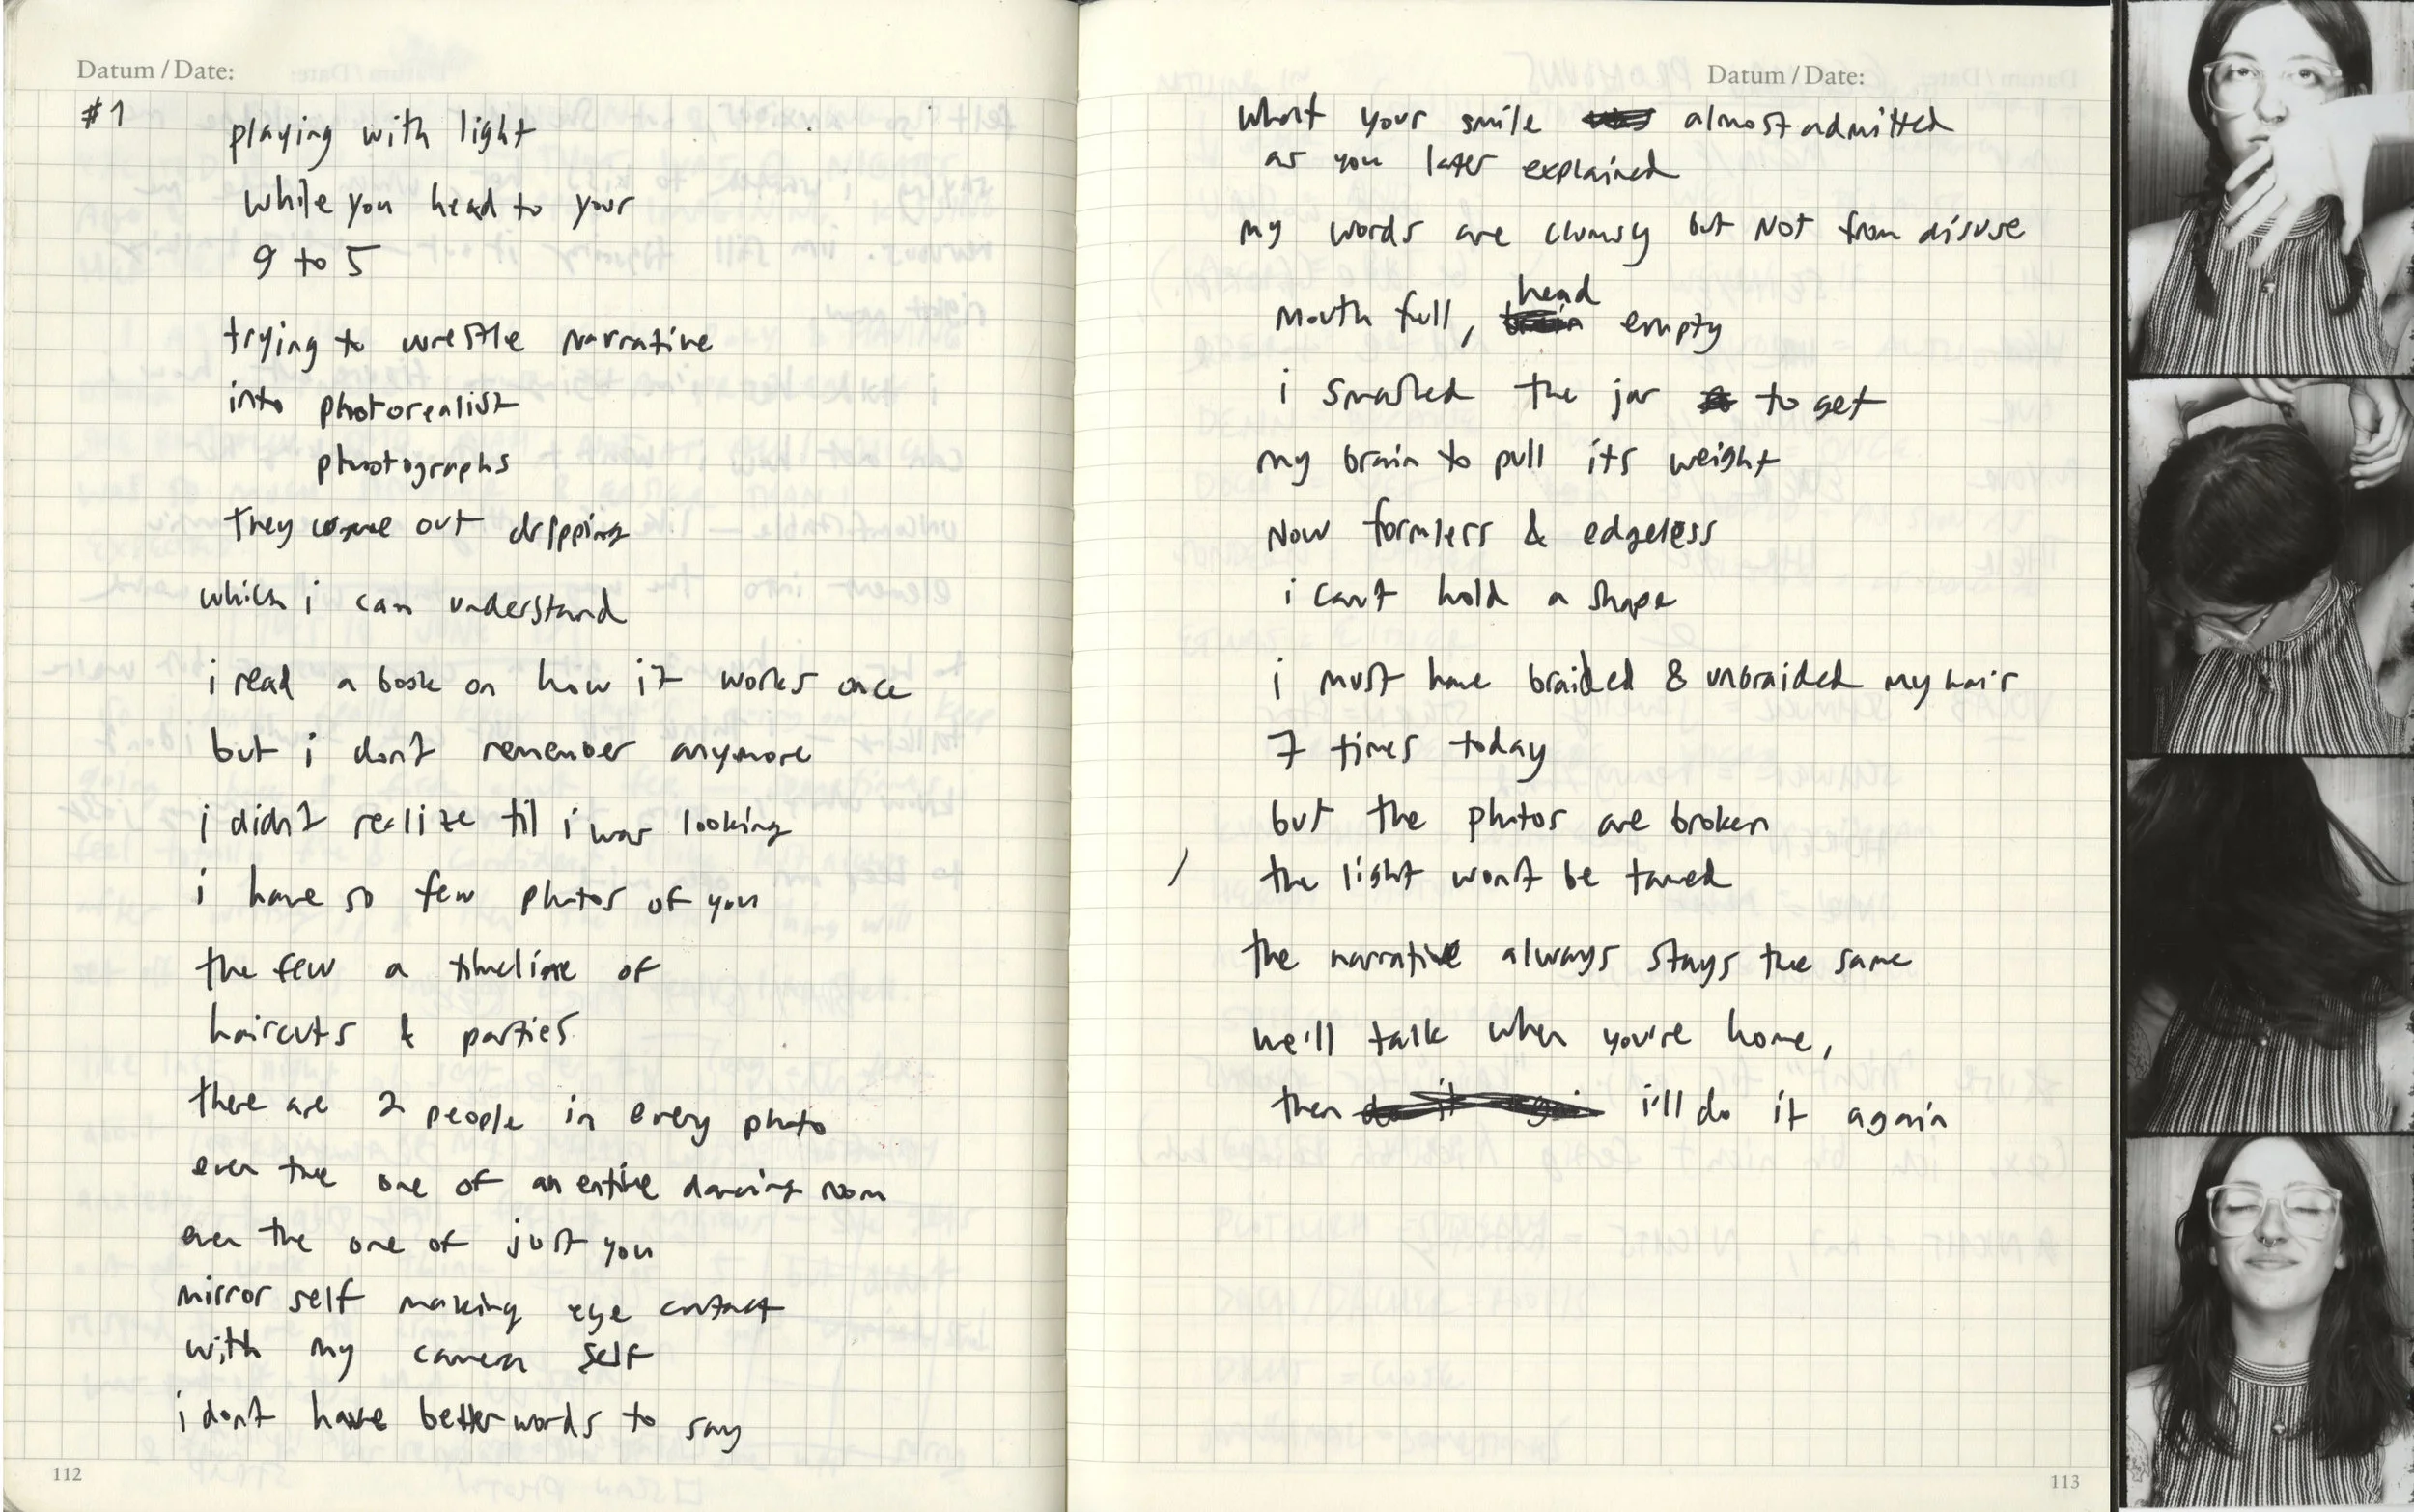 Datum / Date:
#1
playing with light
while you head to your
9 to 5
trying to wrestle narrative
into photorealist
photographs
they come out dripping
which i can understand
i read a book on how it works once
but i don't remember anymore
i didn't realize til i was looking
i have so few photos of you
the few a timeline of
haircuts & parties
there are 2 people in every photo
even the one of an entire dancing room
even the one of just you
mirror self making eye contact
with my camera self
i dont have better words to say
112
Datum / Date:
what your smile almost admitted
as you later explained
my words are clumsy but not from disuse
head
mouth full, brain empty
i smashed the jar to get
my brain to pull its weight
now formless & edgeless
i can't hold a shape
i must have braided & unbraided my hair
7 times today
but the photos are broken
/ the light won't be tamed
the narrative always stays the same
we'll talk when you're home,
then do it again i'll do it again
113